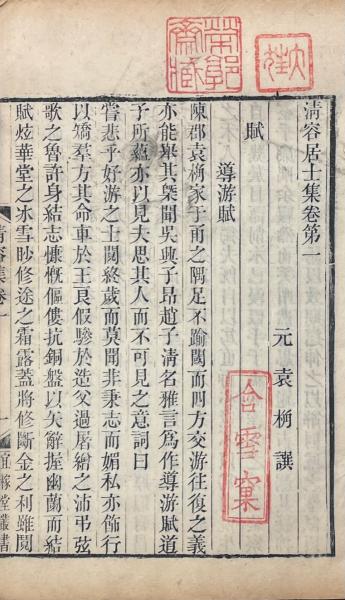 清容居士集卷第一
元 袁桷 譔
賦
導游賦
陳郡袁桷家于甬之隅足不踰閾而四方交游往復之義
亦能舉其槩聞吳興子昂趙子清名雅言爲作導游賦道
子所蘊亦以見夫思其人而不可見之意詞曰
嘗悲乎好游之士閴終歲而莫聞非秉志而媚私亦飾行
以矯羣方其命車於王良假驂於造父過屠繒之沛弔弦
歌之魯許身結志慷慨傴僂抗銅盤以矢辭握幽蘭而結
賦炫華堂之氷雪眇修途之霜露蓋將修斷金之利雖閱
清容集卷一
一
宜稼堂叢書
合雪窠